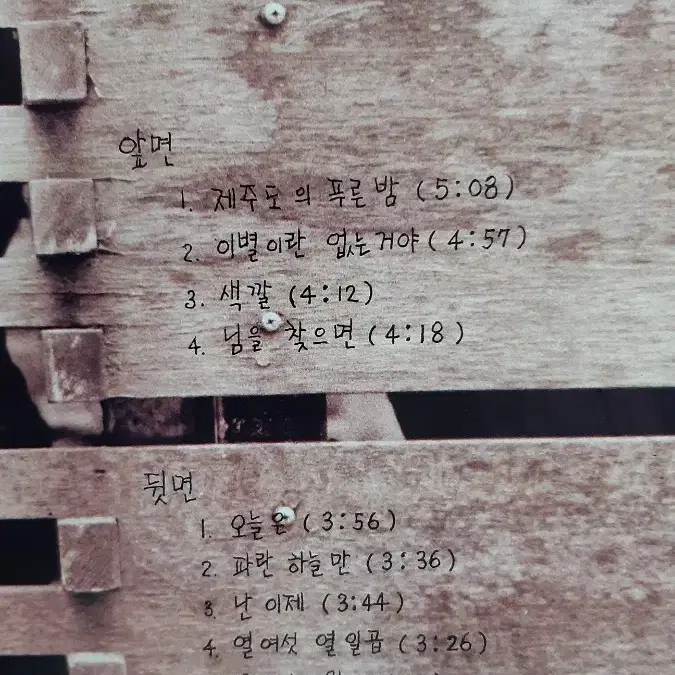 앞면
1. 제주도의 푸른밤 (5:08)
2. 이별이란 없는거야 (4:57)
3. 색깔 (4:12)
4. 님을 찾으면 (4:18)
뒷면
1. 오늘은 (3:56)
2. 파란 하늘만 (3:36)
3. 난 이제 (3:44)
4. 열여섯 열일곱 (3:26)